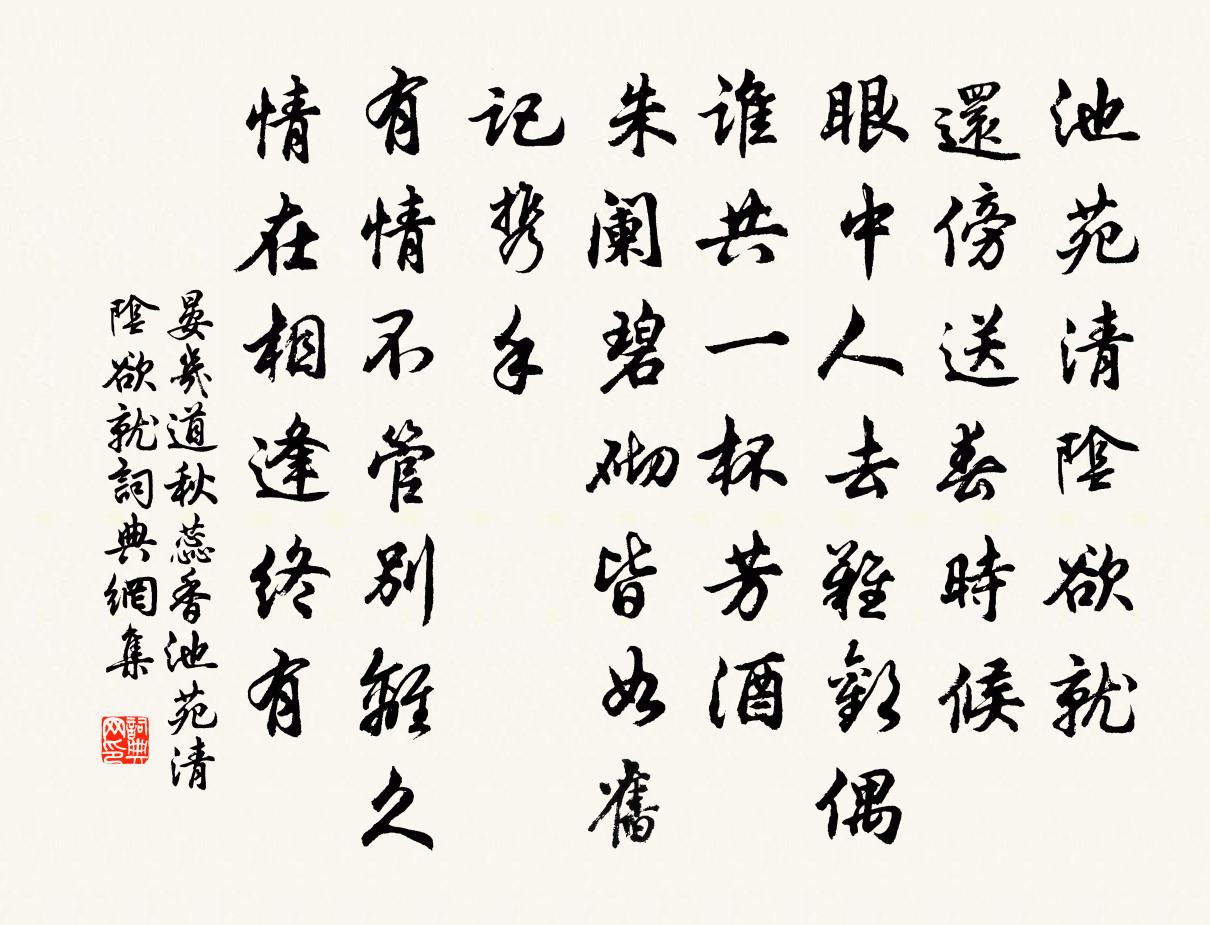 池苑清陰欲就
還傍送春時候
眼中人去難歡偶
谁共一杯芳酒
朱阑碧砌皆如舊
记携手
有情不管別離久
情在相逢终有
晏幾道秋蕊香池苑清
陰欲就詞典網集
詞典网印